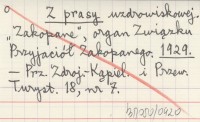 Z prasy uzdrowiskowej.
"Zakopane", organ Związku
Przyjaciół Zakopanego. 1929.
— Prz. Zdroj-Kąpiel. i Przew.
Turyst. 18, nr 7.